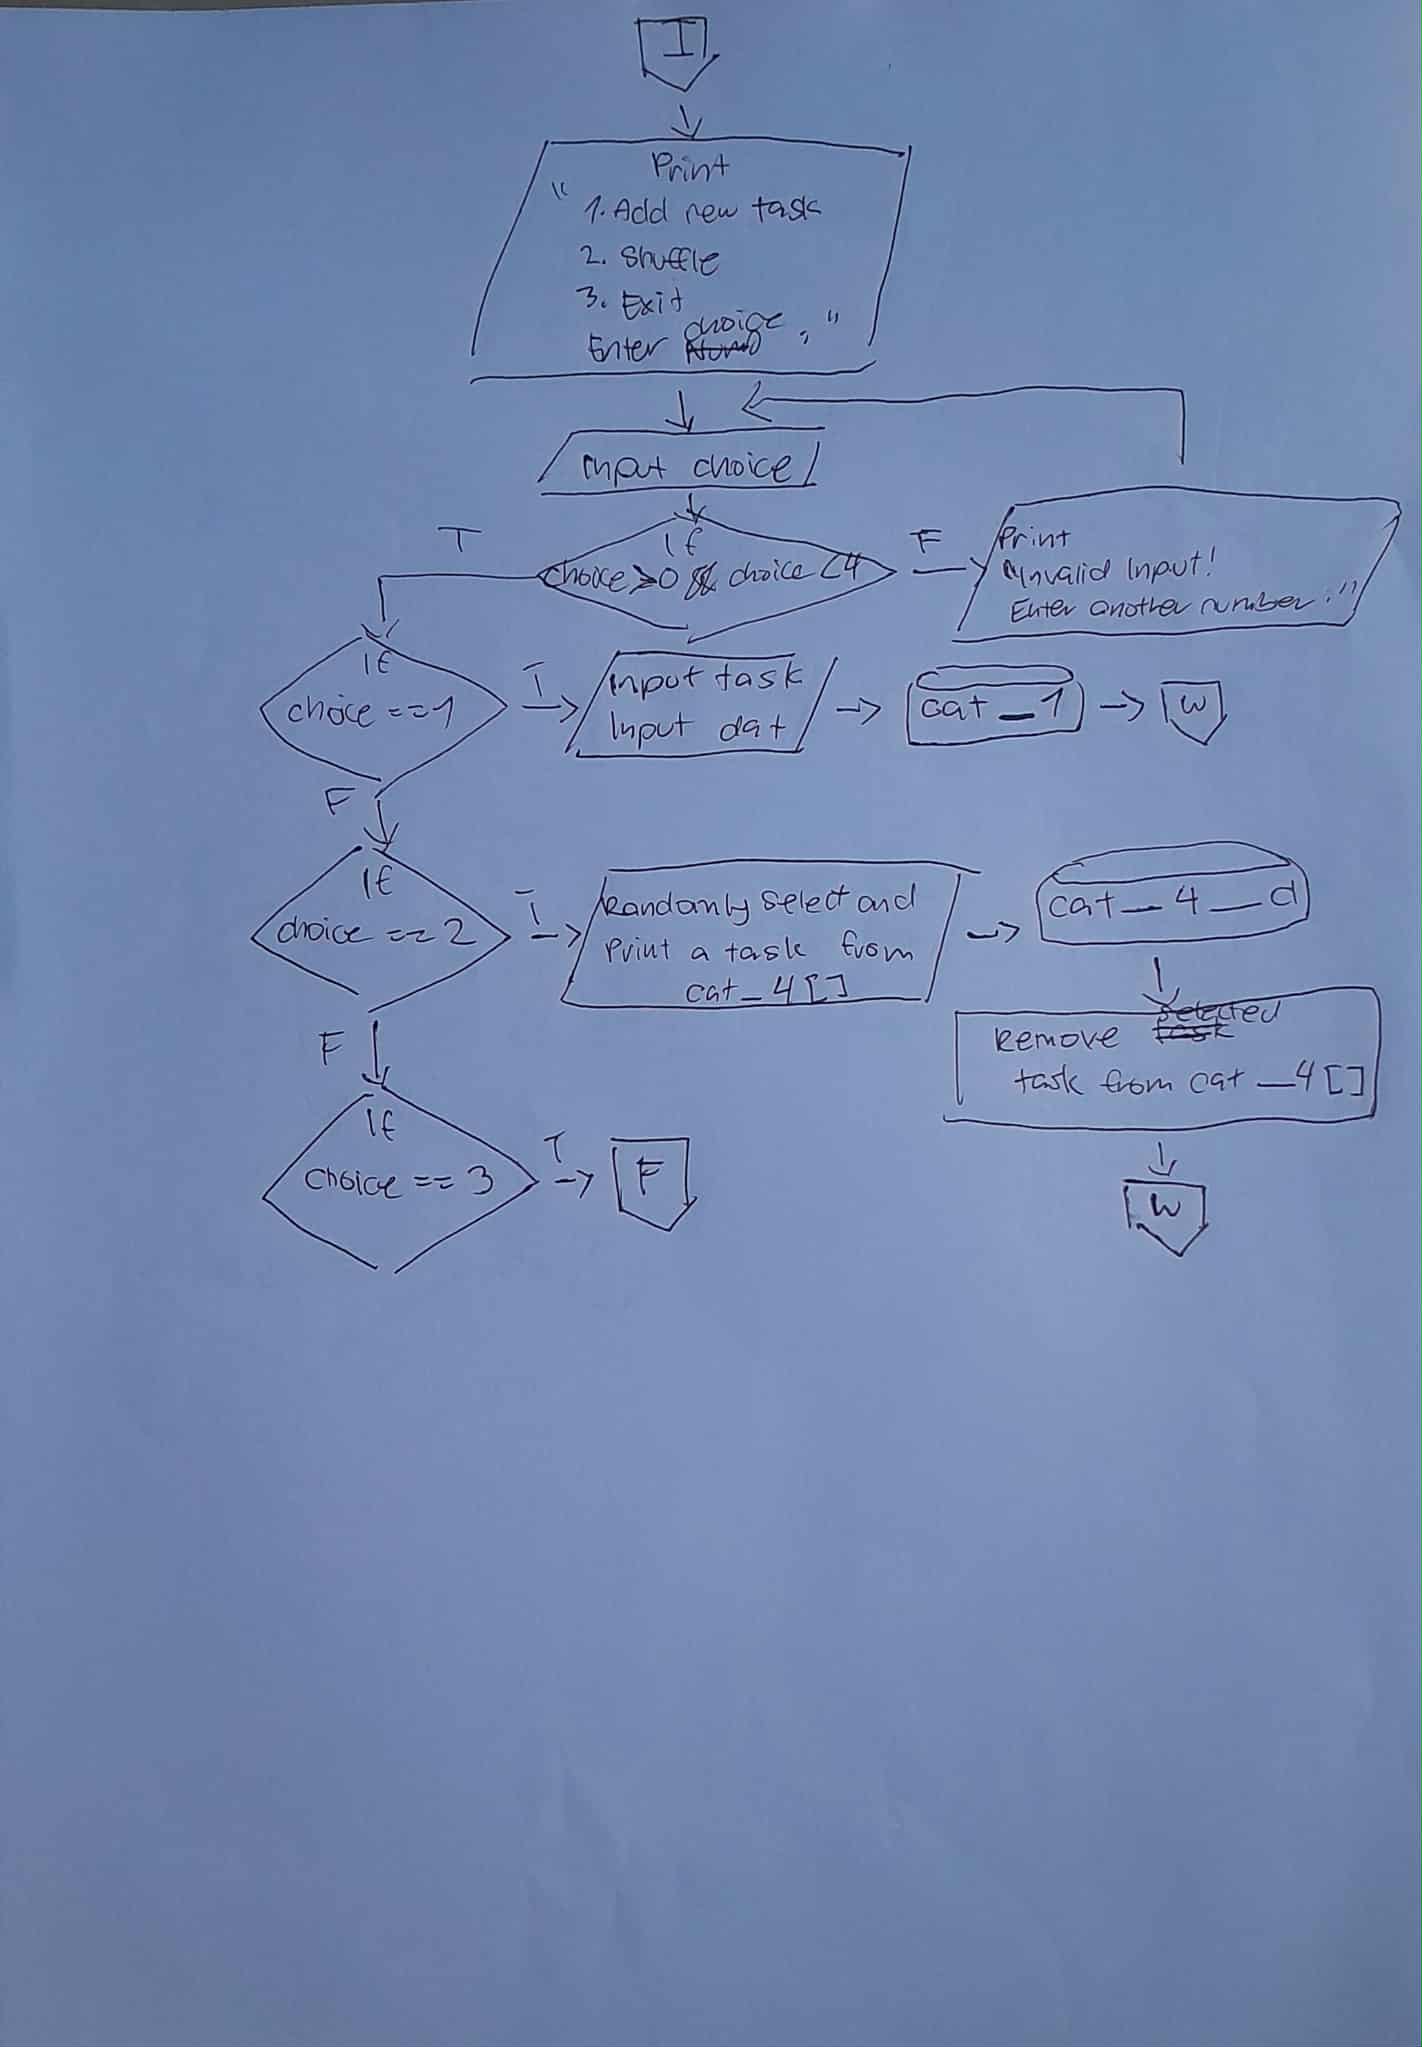 I
Print
"
1. Add new task
2. Shuffle
3. Exit
choice
Enter : "
Input choice
T
If
choice>0 && choice<4
F
Print
"Invalid Input!
Enter another number:"
If
choice ==1
T
Input task
Input dat
cat_1
W
F
If
choice == 2
T
Randomly select and
Print a task from
cat_4[]
cat_4_d
selected
Remove task
task from cat_4[]
W
F
If
choice == 3
T
F